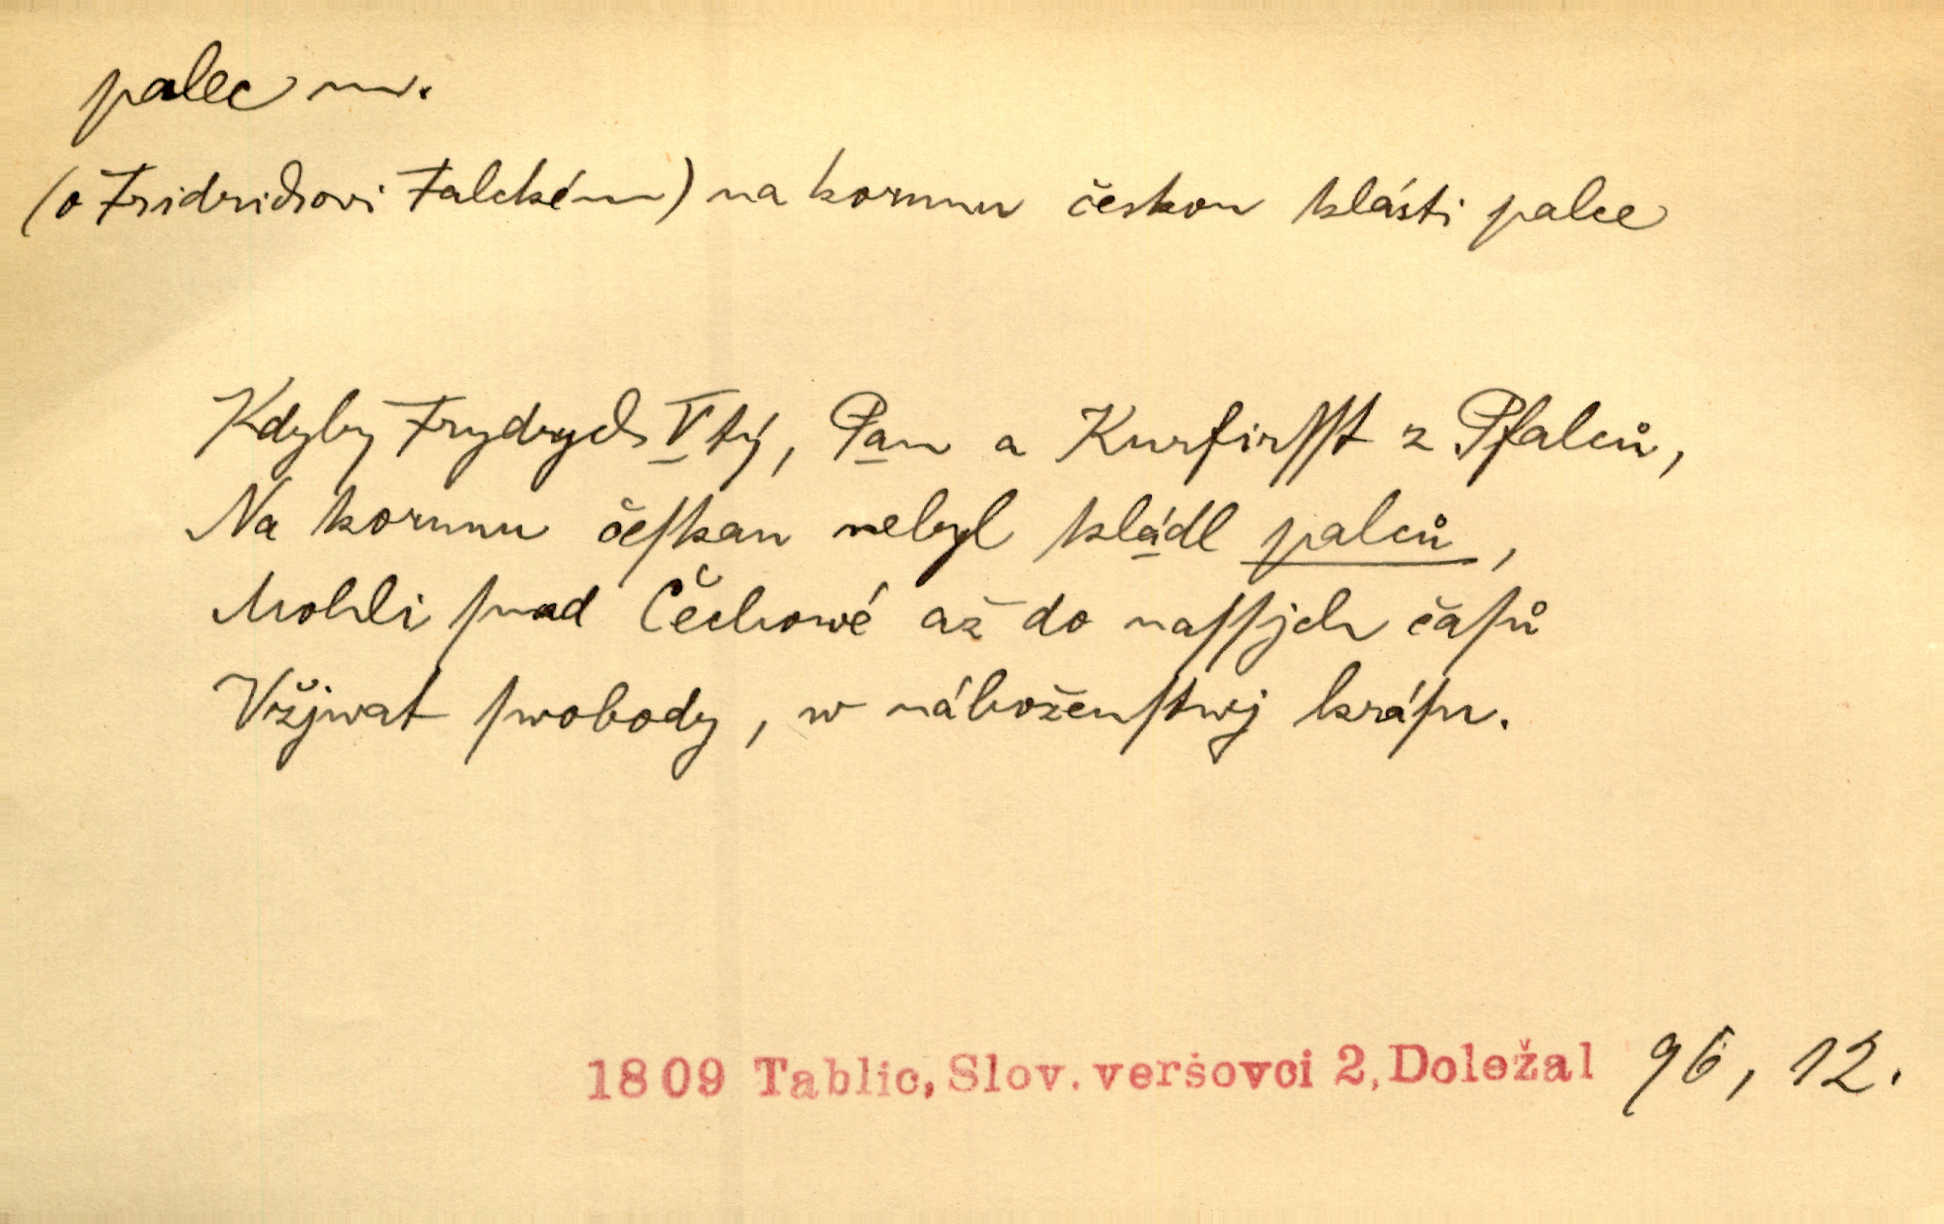 palec m.
(o Fridrichovi Falckém) na korunu českou klásti palce
Kdyby Frydrych V tý, Pan a Kurfirſſt z Pfalců,
Na korunu čeſkau nebyl kládl palců,
Mohli ſnad Čechowé až do naſſjch čaſů
Vžjwat ſwobody, w náboženſtwj kráſu.
1809 Tablic, Slov. veršovci 2, Doležal 96, 12.